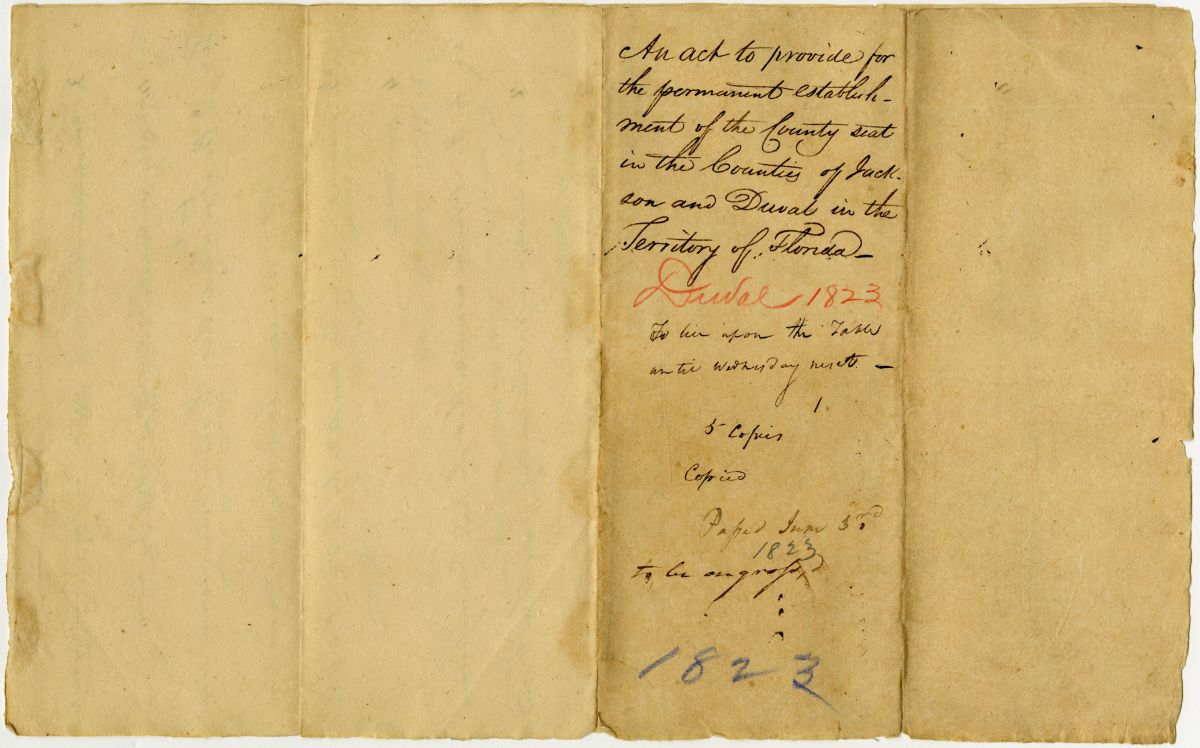 An act to provide for
the permanent establish-
ment of the County seat
in the Counties of Jack-
son and Duval in the
Territory of Florida—
Duval 1823
To lie upon the Table
until Wednesday next —
5 Copies
Copied
Passed June 3rd
1823
to be engrossed
1823